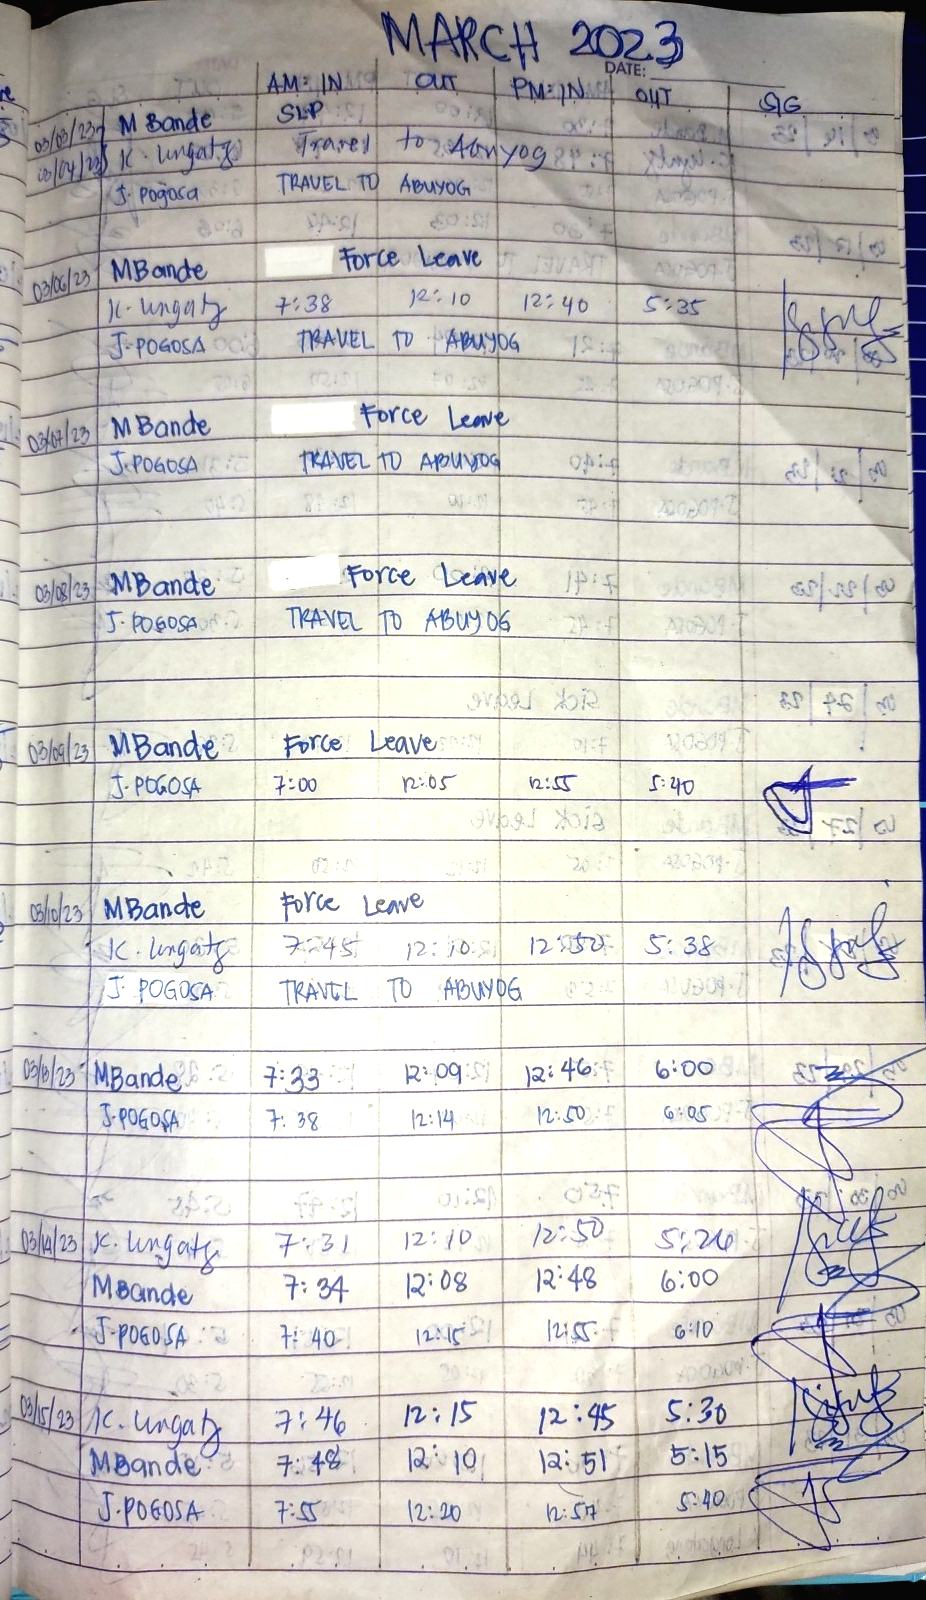 MARCH 2023
DATE:
AM: IN OUT PM: IN OUT SIG
03/03/23 M Bande SLP
03/04/23 K. Ungatz Travel to Abuyog
J. Pogosa TRAVEL TO ABUYOG
03/06/23 MBande Force Leave
K. Ungatz 7:38 12:10 12:40 5:35
J. POGOSA TRAVEL TO ABUYOG
03/07/23 MBande Force Leave
J. POGOSA TRAVEL TO ABUYOG
03/08/23 MBande Force Leave
J. POGOSA TRAVEL TO ABUYOG
03/09/23 MBande Force Leave
J. POGOSA 7:00 12:05 12:55 5:40
03/10/23 MBande Force Leave
K. Ungatz 7:45 12:10 12:50 5:38
J. POGOSA TRAVEL TO ABUYOG
03/13/23 MBande 7:33 12:09 12:46 6:00
J. POGOSA 7:38 12:14 12:50 6:05
03/14/23 K. Ungatz 7:31 12:10 12:50 5:26
MBande 7:34 12:08 12:48 6:00
J. POGOSA 7:40 12:15 12:55 6:10
03/15/23 K. Ungatz 7:46 12:15 12:45 5:30
MBande 7:48 12:10 12:51 5:15
J. POGOSA 7:55 12:20 12:57 5:40